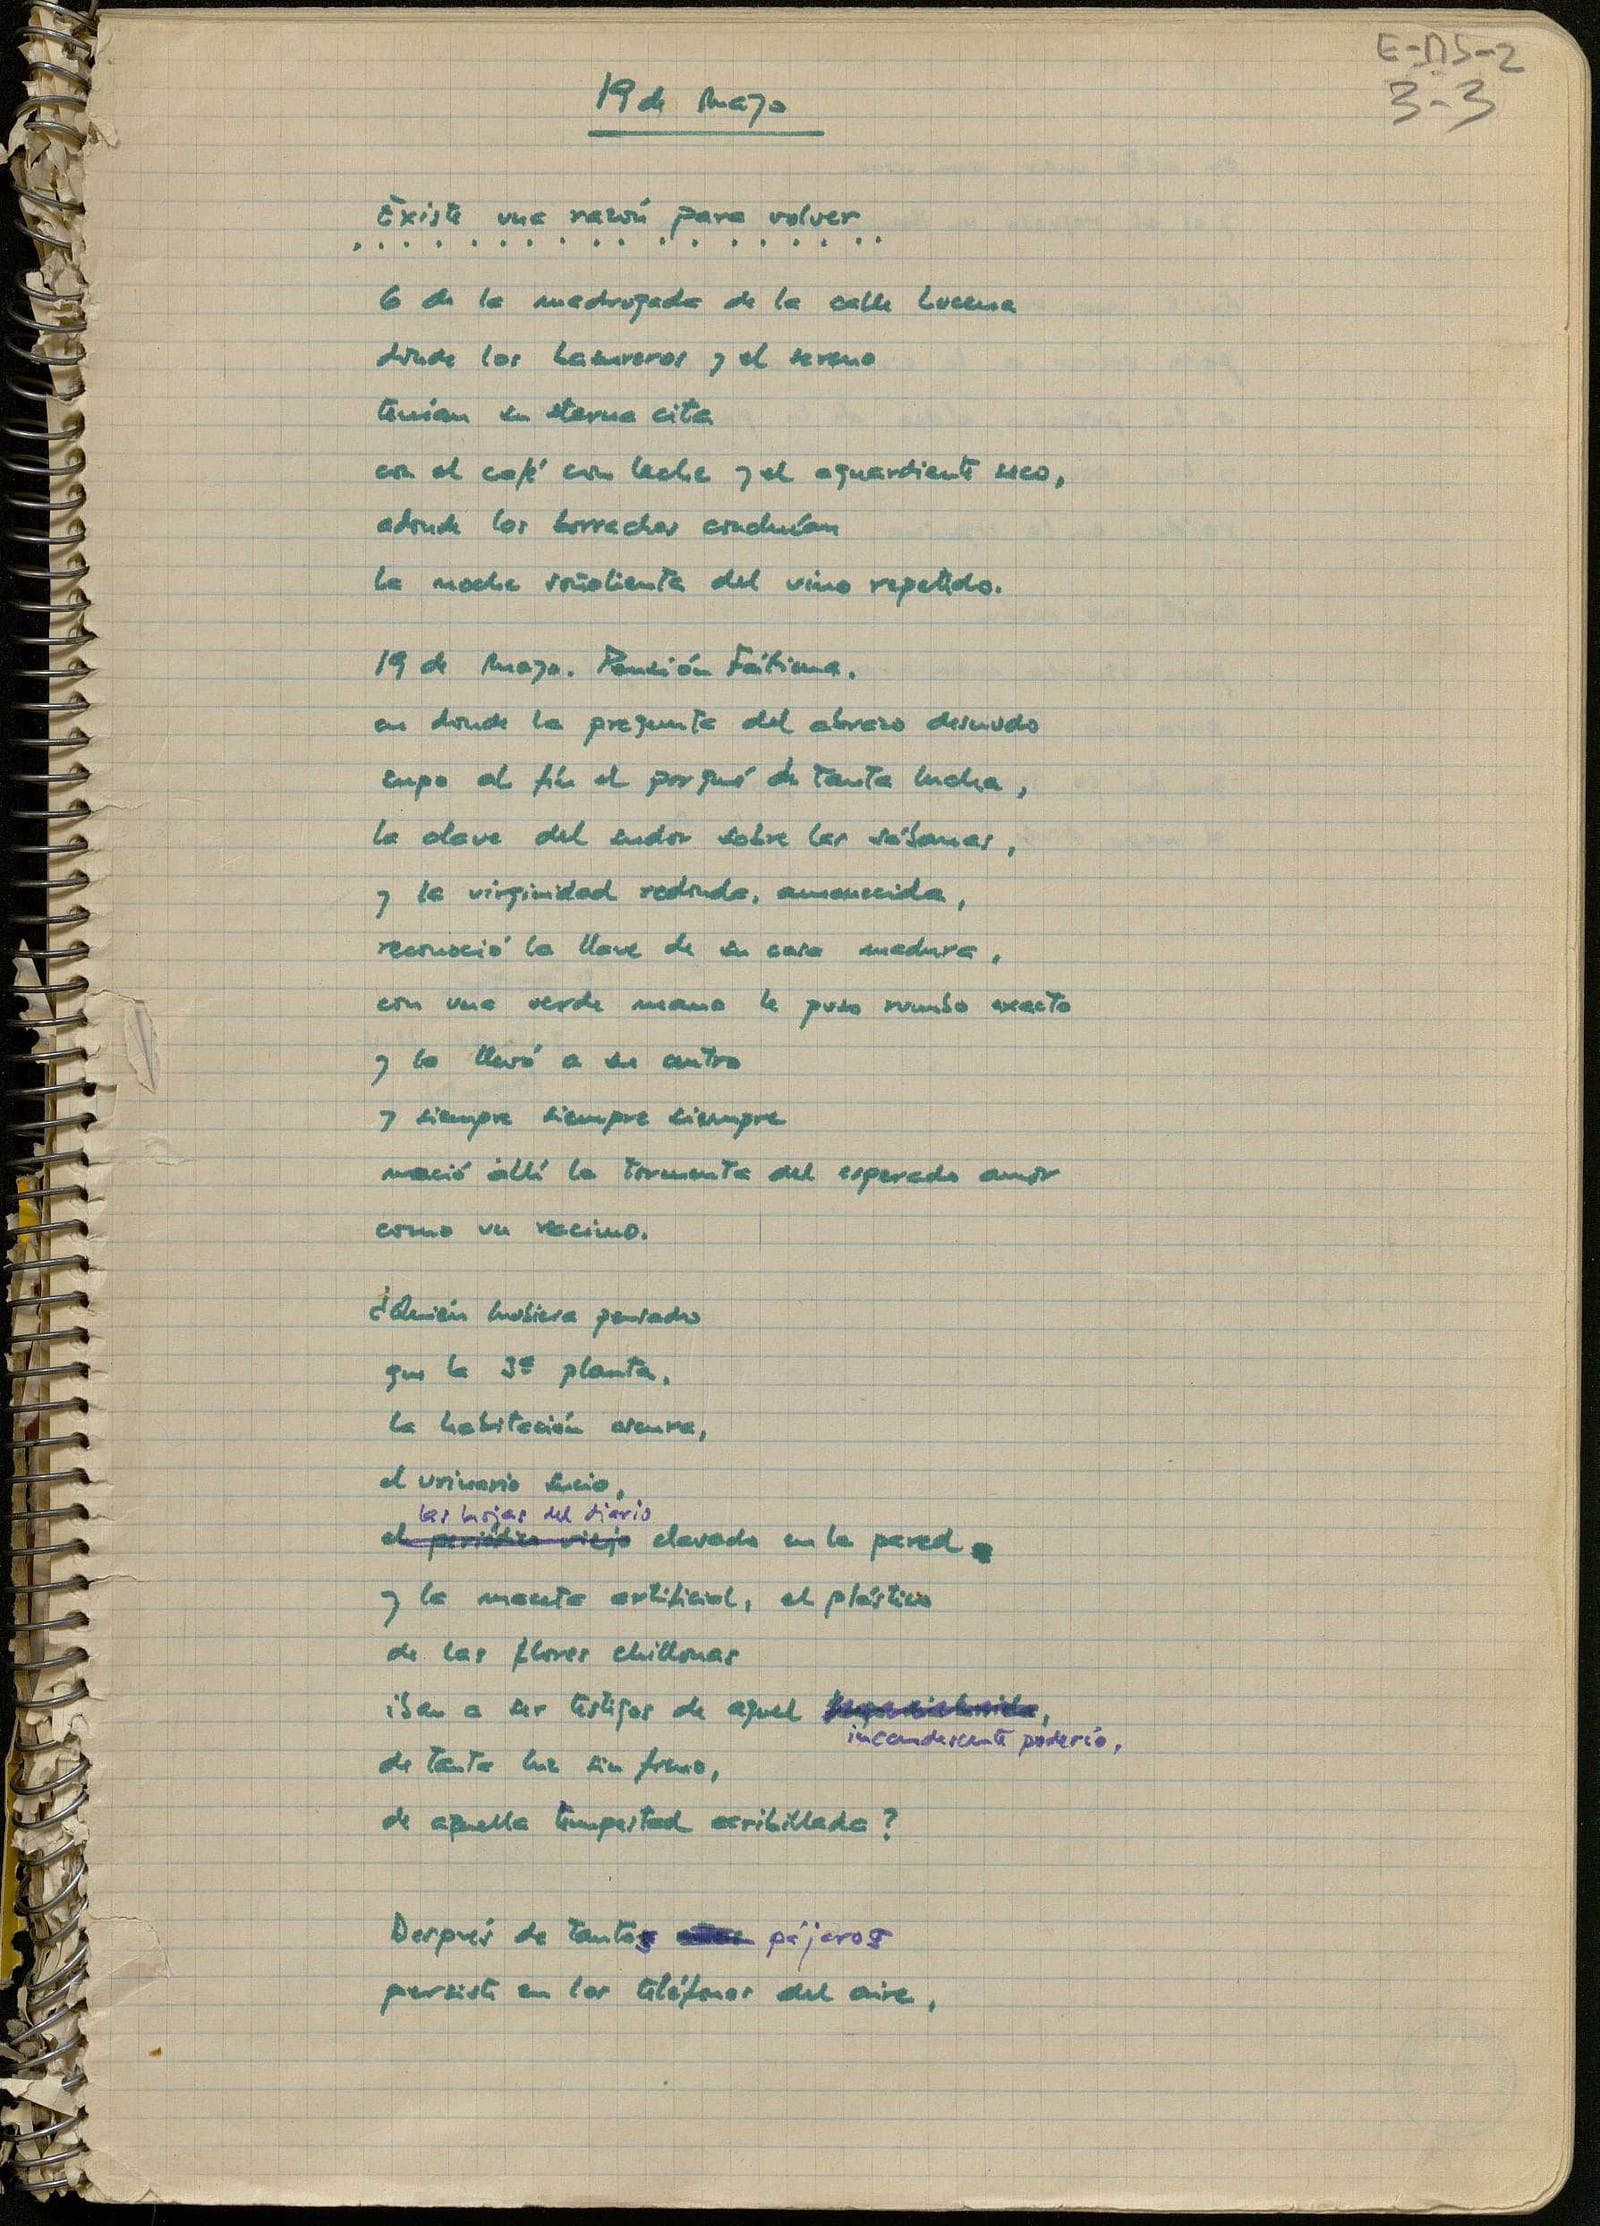 E-DS-2
3-3
19 de Mayo
Existe una razón para volver
6 de la madrugada de la calle Lucena
donde los basureros y el sereno
tenían su eterna cita
con el café con leche y el aguardiente seco,
adonde los borrachos conducían
la noche soñolienta del vino repetido.
19 de Mayo. Pensión Fátima.
en donde la pregunta del abrazo desnudo
supo al fin el porqué de tanta lucha,
la clave del sudor sobre las sábanas,
y la virginidad redonda, amanecida,
reconoció la llave de su casa madura,
con una verde mano le puso rumbo exacto
y lo llevó a su centro
y siempre siempre siempre
nació allí la tormenta del esperado amor
como un racimo.
¿Quién hubiera pensado
que la 3ª planta,
la habitación oscura,
el urinario sucio,
las hojas del diario
el periódico viejo clavado en la pared
y la maceta artificial, el plástico
de las flores chillonas
iban a ser testigos de aquel
incandescente poderío,
de tanta luz sin freno,
de aquella tempestad acribillada?
Después de tantos pájaros
persiste en los teléfonos del aire,